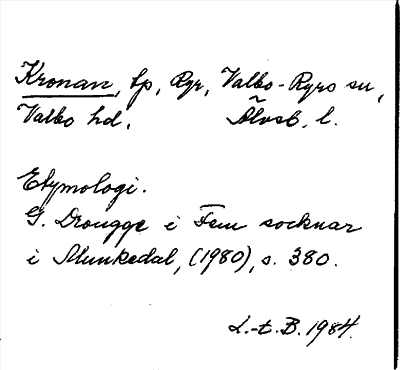 Kronan, tp, Ryr, Valbo-Ryrs sn,
Valbo hd, Älvsb. l.
Etymologi.
G. Drougge i Fem socknar
i Munkedal, (1980), s. 380.
L.-t. B. 1984.